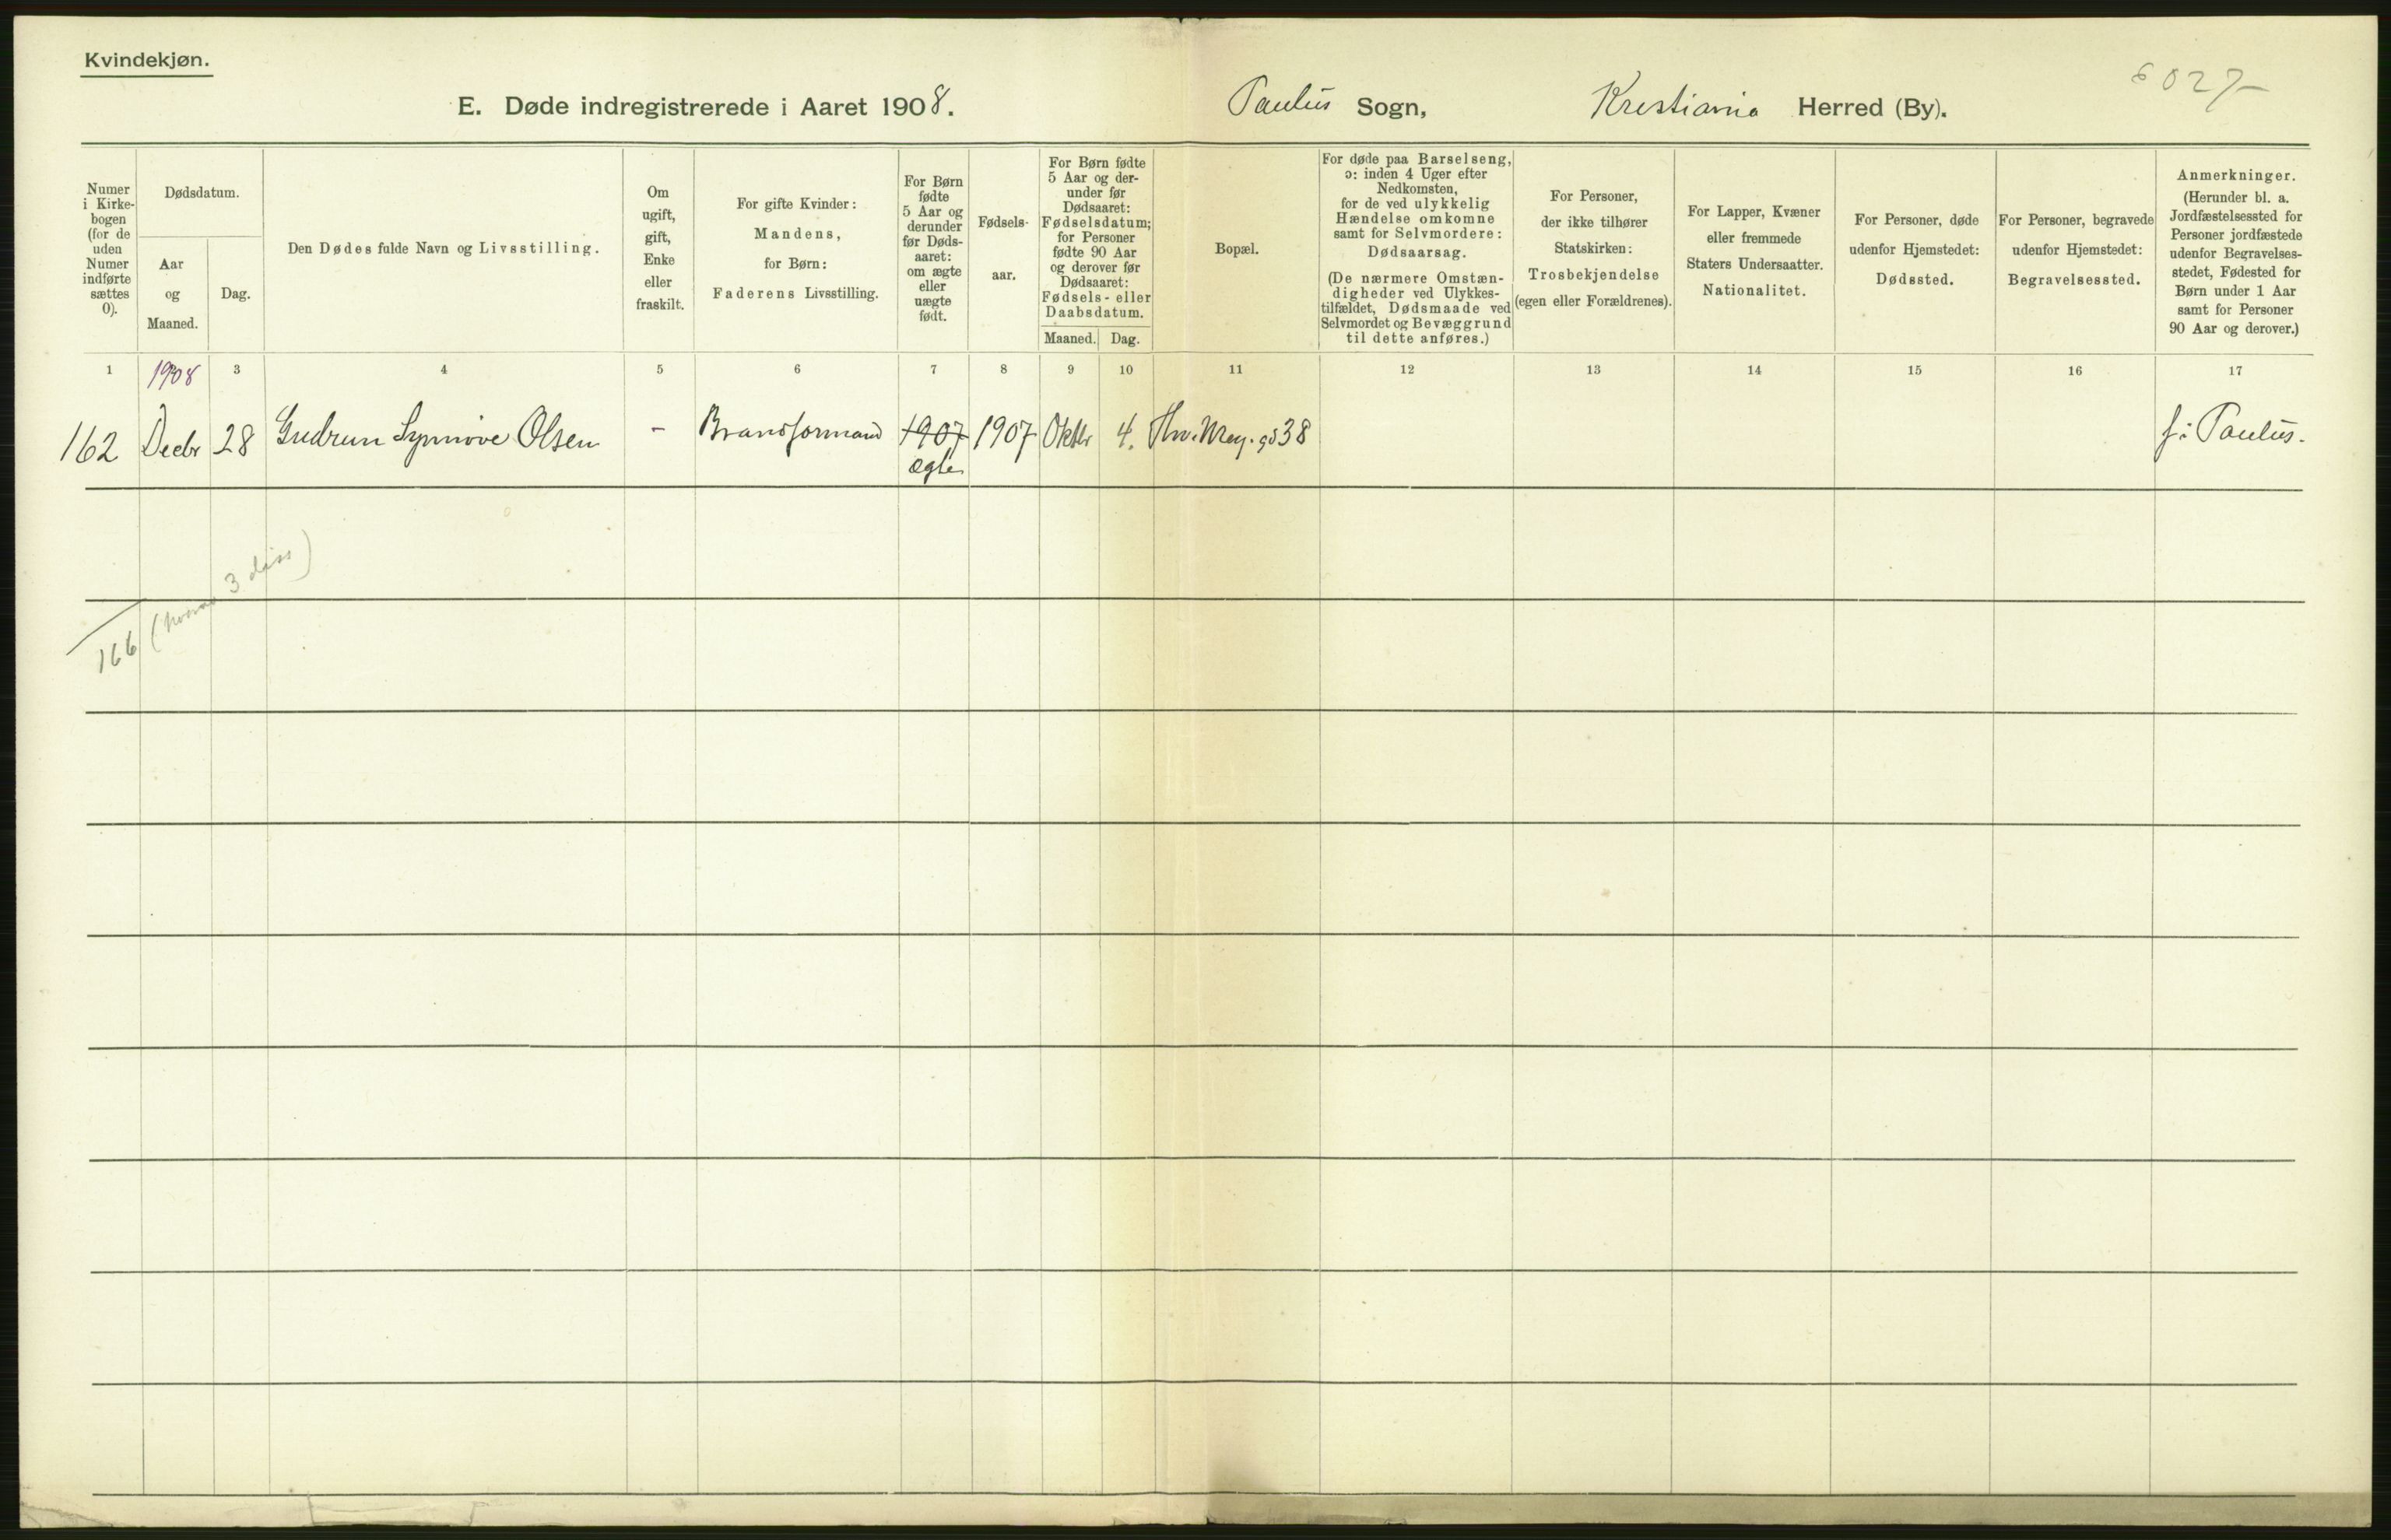 Kvindekjøn.
6027
E. Døde indregistrerede i Aaret 1908. Paulus Sogn, Kristiania Herred (By).
Numer
i Kirke-
bogen
(for de
uden
Numer
indførte
sættes
0).
Dødsdatum.
Aar
og
Maaned.
Dag.
Den Dødes fulde Navn og Livsstilling.
Om
ugift,
gift,
Enke
eller
fraskilt.
For gifte Kvinder:
Mandens,
for Børn:
Faderens Livsstilling.
For Børn
fødte
5 Aar og
derunder
før Døds-
aaret:
om ægte
eller
uægte
født.
Fødsels-
aar.
For Børn fødte
5 Aar og der-
under før
Dødsaaret:
Fødselsdatum;
for Personer
fødte 90 Aar
og derover før
Dødsaaret:
Fødsels- eller
Daabsdatum.
Maaned. Dag.
Bopæl.
For døde paa Barselseng,
ɔ: inden 4 Uger efter
Nedkomsten,
for de ved ulykkelig
Hændelse omkomne
samt for Selvmordere:
Dødsaarsag.
(De nærmere Omstæn-
digheder ved Ulykkes-
tilfældet, Dødsmaade ved
Selvmordet og Bevæggrund
til dette anføres.)
For Personer,
der ikke tilhører
Statskirken:
Trosbekjendelse
(egen eller Forældrenes).
For Lapper, Kvæner
eller fremmede
Staters Undersaatter.
Nationalitet.
For Personer, døde
udenfor Hjemstedet:
Dødssted.
For Personer, begravede
udenfor Hjemstedet:
Begravelsessted.
Anmerkninger.
(Herunder bl. a.
Jordfæstelsessted for
Personer jordfæstede
udenfor Begravelses-
stedet, Fødested for
Børn under 1 Aar
samt for Personer
90 Aar og derover.)
1 1908 3 4 5 6 7 8 9 10 11 12 13 14 15 16 17
162 Decbr 28 Gudrun Synnøve Olsen - Brandformand 1907 1907 Oktbr 4. Thv. Mey. gd 38 f: Paulus.
ægte
166 (hvoraf 3 diss)